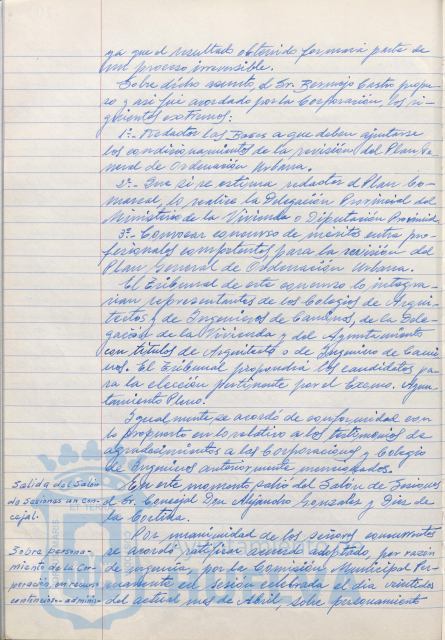 ya que el resultado obtenido formará parte de
un proceso irreversible.
Sobre dicho asunto, el Sr. Bermejo Castro propu-
so y así fué acordado por la Corporación, los si-
guientes extremos:
1º.- Redactar las Bases a que deben ajustarse
los condicionamientos de la revisión del Plan Ge-
neral de Ordenación Urbana.
2º.- Que si se estima redactar el Plan Co-
marcal, lo realice la Delegación Provincial del
Ministerio de la Vivienda o Diputación Provincial.
3º.- Convocar concurso de méritos entre pro-
fesionales competentes para la revisión del
Plan General de Ordenación Urbana.
El Tribunal de este concurso lo integra-
rían representantes de los Colegios de Arqui-
tectos, de Ingenieros de Caminos, de la Dele-
gación de la Vivienda y del Ayuntamiento
con títulos de Arquitecto o de Ingeniero de Cami-
nos. El Tribunal propondrá los candidatos pa-
ra la elección pertinente por el Excmo. Ayun-
tamiento Pleno.
Igualmente, se acordó de conformidad con
lo propuesto en lo relativo a los testimonios de
agradecimientos a las Corporaciones y Colegio
de Ingenieros anteriormente mencionados.
Salida del Salón
de Sesiones un con-
cejal.
En este momento salió del Salón de Sesiones
el Sr. Concejal Don Alejandro González y Díez de
la Cortina.
Sobre persona-
miento de la Cor-
poración en recurso
contencioso-adminis-
Por unanimidad de los señores concurrentes
se acordó ratificar acuerdo adoptado, por razón
de urgencia, por la Comisión Municipal Per-
manente en sesión celebrada el día veintidos
del actual mes de Abril, sobre personamiento